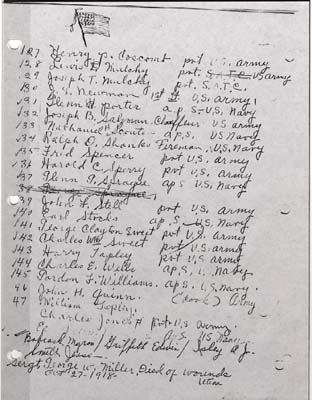 127 Henry P. Coscomb pvt U.S. Army
128 Lewis E. Mulchy pvt. S.A.T.C. US army
129 Joseph T. Mulchy pvt. S.A.T.C.
130 Newman 1st Lt. U.S. Army
131 Glenn H porter a p S - U.S. Navy
132 Joseph B. Salzman Chauffeur US army
133 Nathaniel Scouts - a.p.S. US Navy
134 Ralph O. Shanks Fireman, U.S. Navy
135 Frid Spencer pvt U.S. army
136 Harold C. Sperry pvt U.S. army
137 Glenn A. Sprague a p S U.S. Navy
138
139 John F. Stell pvt U.S. Army
140 Earl Stocks a p S U.S. Navy
141 George Clayton Sweet pvt U.S. Army
142 Charles Wm Sweet pvt U.S. army
143 Harry Tapley pvt U.S. army
144 Charles E. Wells a p. S, U. S. Navy
145 Gordon F. Williams. a p. S, U.S. Navy.
46 John H. Quinn. (Cook) Army
47 William Tapley.
Charles Jones pvt U.S Army.
U.S Navy
Babcock Myron / Griffett Edwin / Saly A.J.
Smith Jesse
Sergt George W. Miller, Died of wounds
Oct 27 - 1918